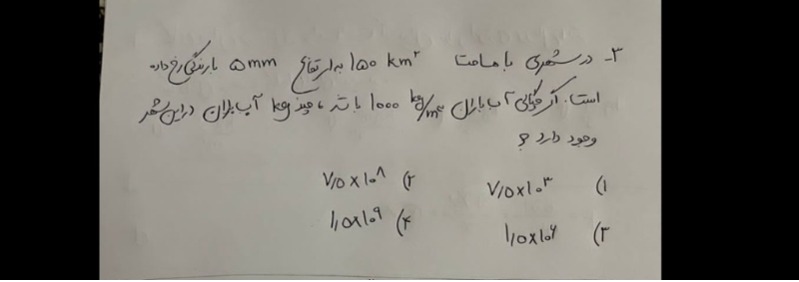 ۳- در شهری با مساحت ۱۵۰ km² به ارتفاع ۵mm بارندگی رخ داده
است. اگر چگالی آب باران ۱۰۰۰ kg/m³ باشد، چند kg آب باران در این شهر
وجود دارد؟
۱) ۷/۵×۱۰³ ۲) ۷/۵×۱۰⁸
۳) ۱/۵×۱۰⁶ ۴) ۱/۵×۱۰⁹